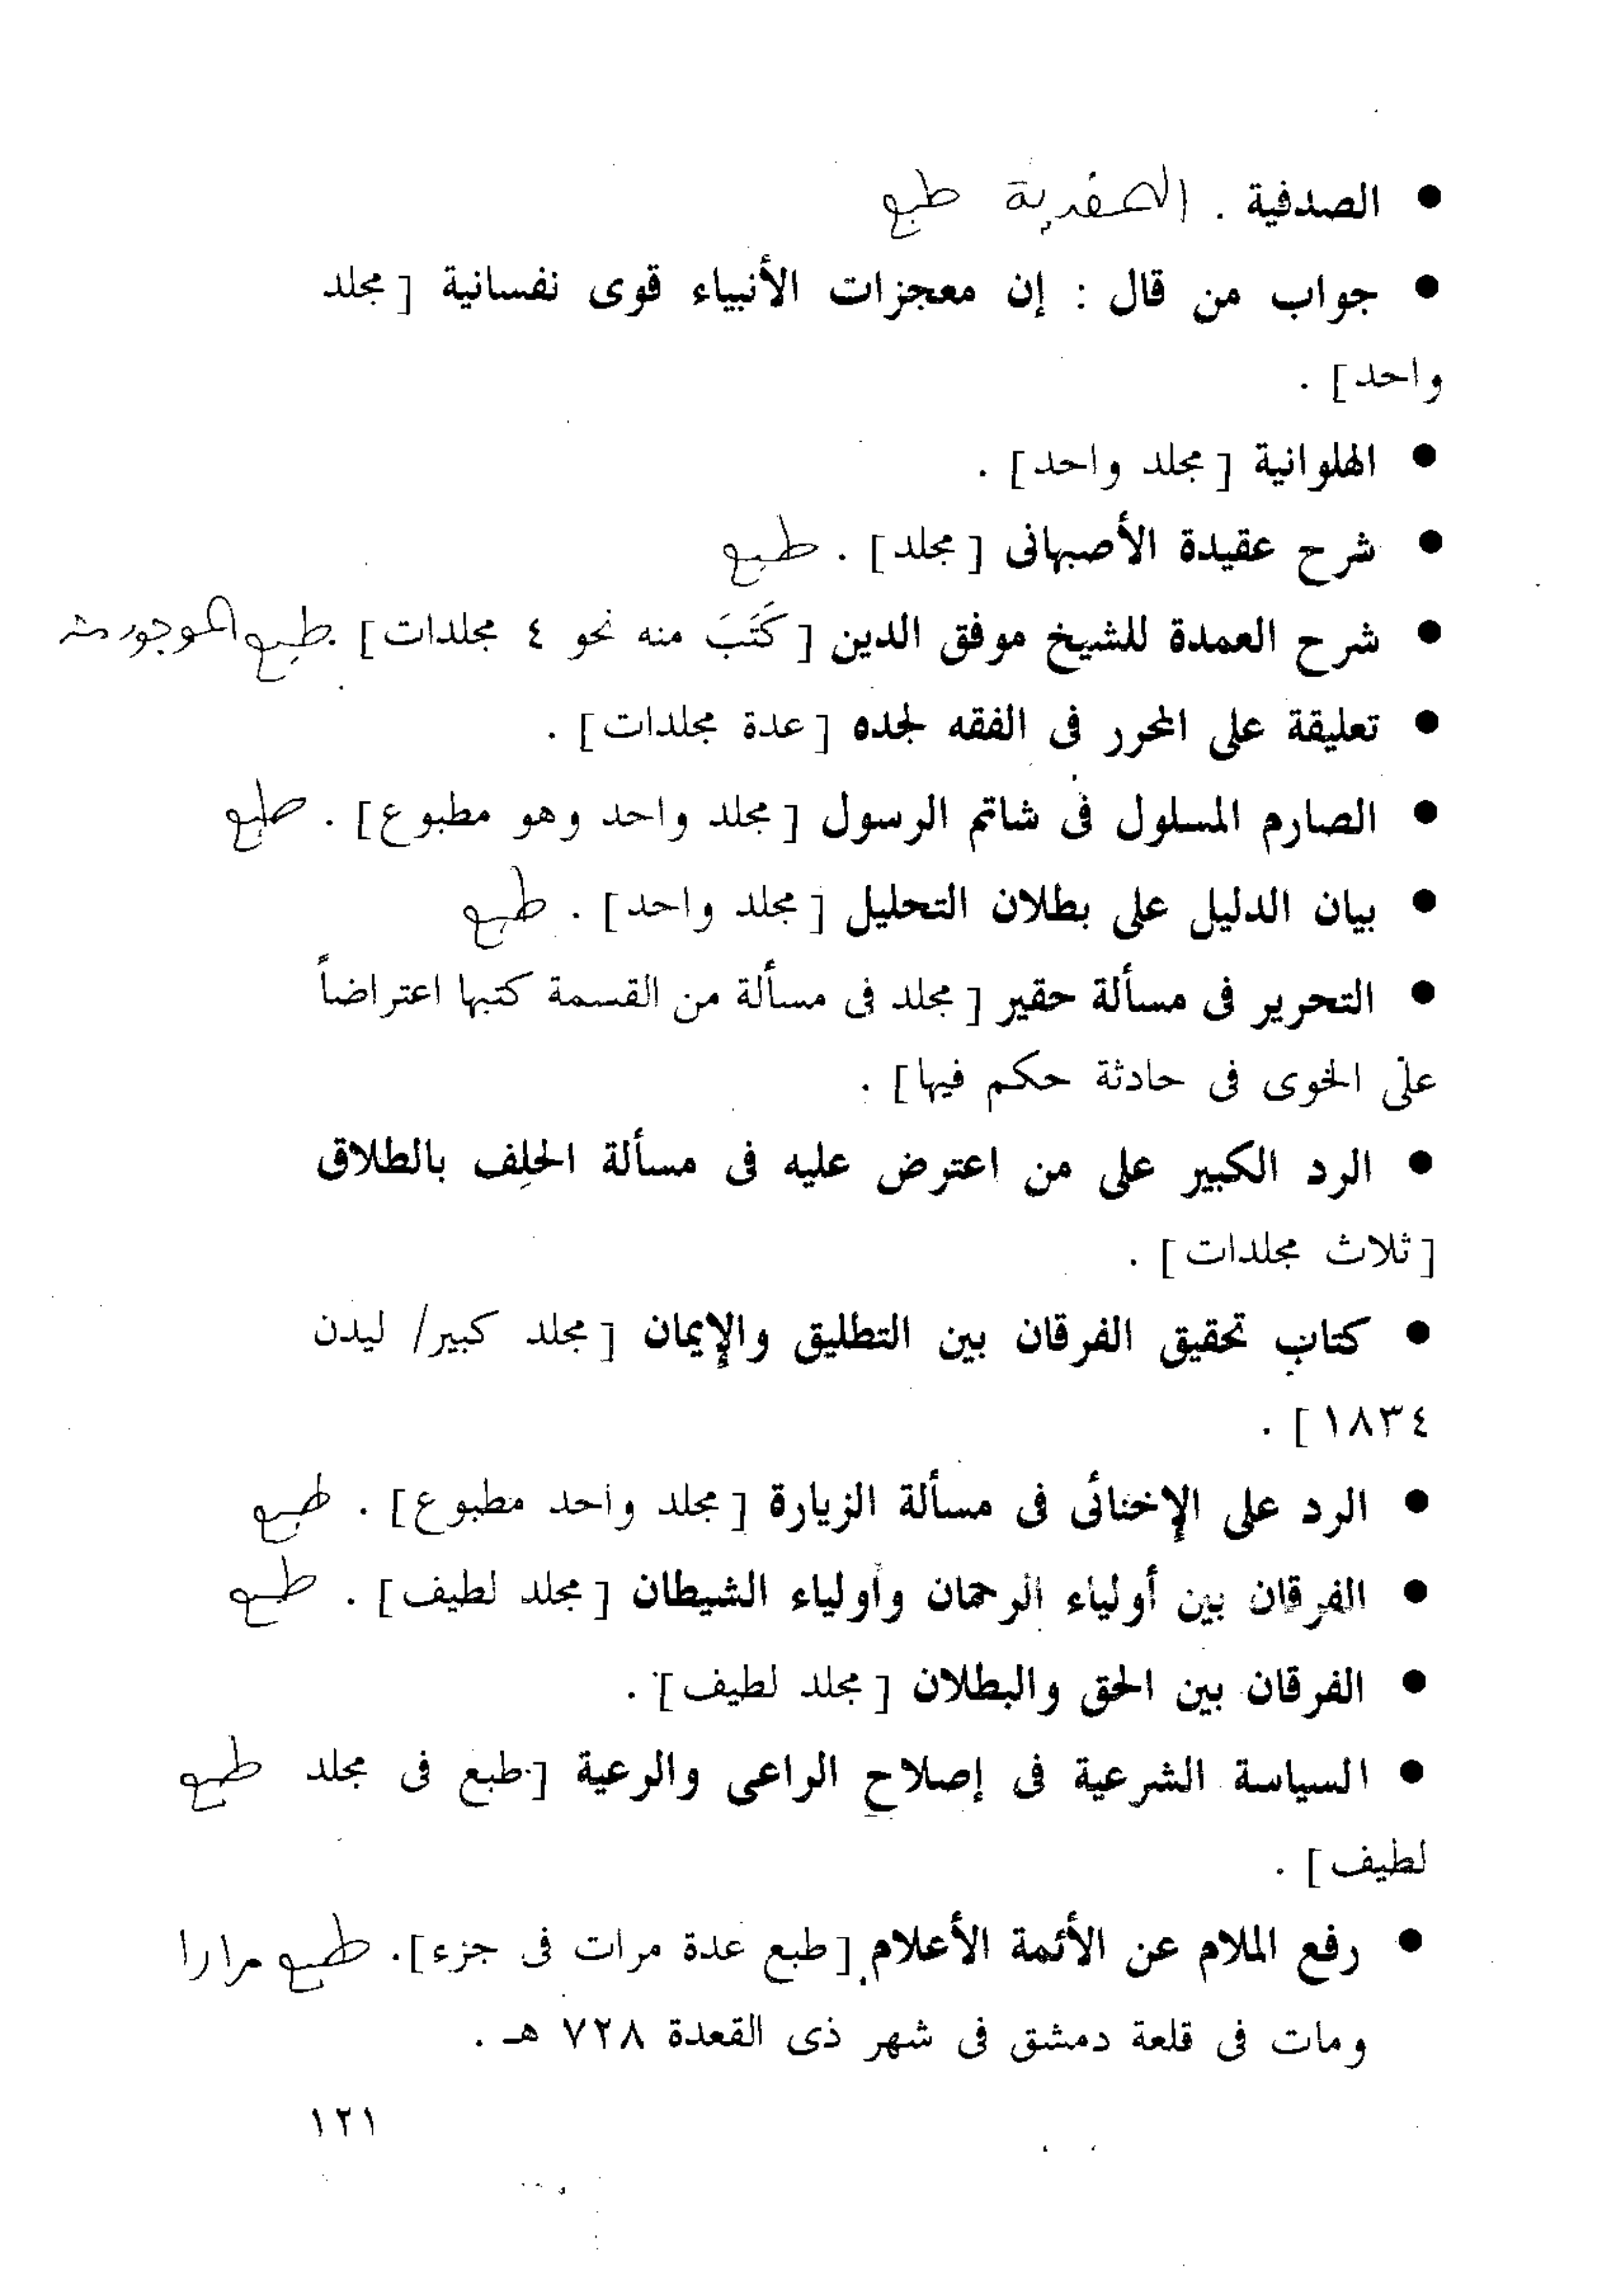 ● الصدفية . الصفدية طبع
● جواب من قال : إن معجزات الأنبياء قوى نفسانية [ مجلد
واحد ] .
● الهلوانية [ مجلد واحد ] .
● شرح عقيدة الأصبهانى [ مجلد ] . طبع
● شرح العمدة للشيخ موفق الدين [ كَتَبَ منه نحو ٤ مجلدات ] . طبع الموجود منه
● تعليقة على المحرر فى الفقه لجده [ عدة مجلدات ] .
● الصارم المسلول فى شاتم الرسول [ مجلد واحد وهو مطبوع ] . طبع
● بيان الدليل على بطلان التحليل [ مجلد واحد ] . طبع
● التحرير فى مسألة حقير [ مجلد فى مسألة من القسمة كتبها اعتراضاً
على الخوى فى حادثة حكم فيها ] .
● الرد الكبير على من اعترض عليه فى مسألة الحلِف بالطلاق
[ ثلاث مجلدات ] .
● كتاب تحقيق الفرقان بين التطليق والإيمان [ مجلد كبير/ ليدن
١٨٣٤ ] .
● الرد على الإخنائى فى مسألة الزيارة [ مجلد واحد مطبوع ] . طبع
● الفرقان بين أولياء الرحمان وأولياء الشيطان [ مجلد لطيف ] . طبع
● الفرقان بين الحق والبطلان [ مجلد لطيف ] .
● السياسة الشرعية فى إصلاح الراعى والرعية [ طبع فى مجلد طبع
لطيف ] .
● رفع الملام عن الأئمة الأعلام [ طبع عدة مرات فى جزء ] . طبع مرارا
ومات فى قلعة دمشق فى شهر ذى القعدة ٧٢٨ هـ .
١٢١